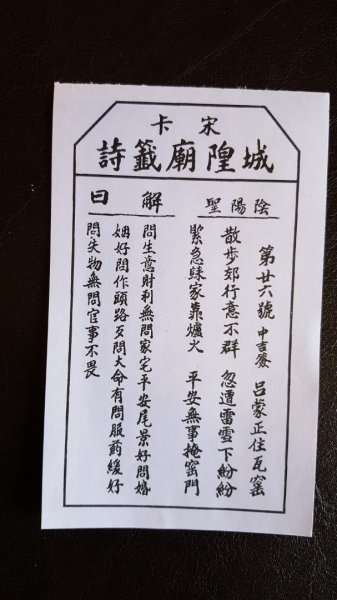 宋卡
城隍廟籤詩
陰陽聖
第廿六號 中吉簽 呂蒙正住瓦窑
散步郊行意不群 忽遭雷雪下紛紛
緊急家靠爐火 平安無事掩窑門
解曰
問生意財利無問家宅平安尾景好問婚
姻好問作頭路歹問大命有問服药緩好
問失物無問官事不畏